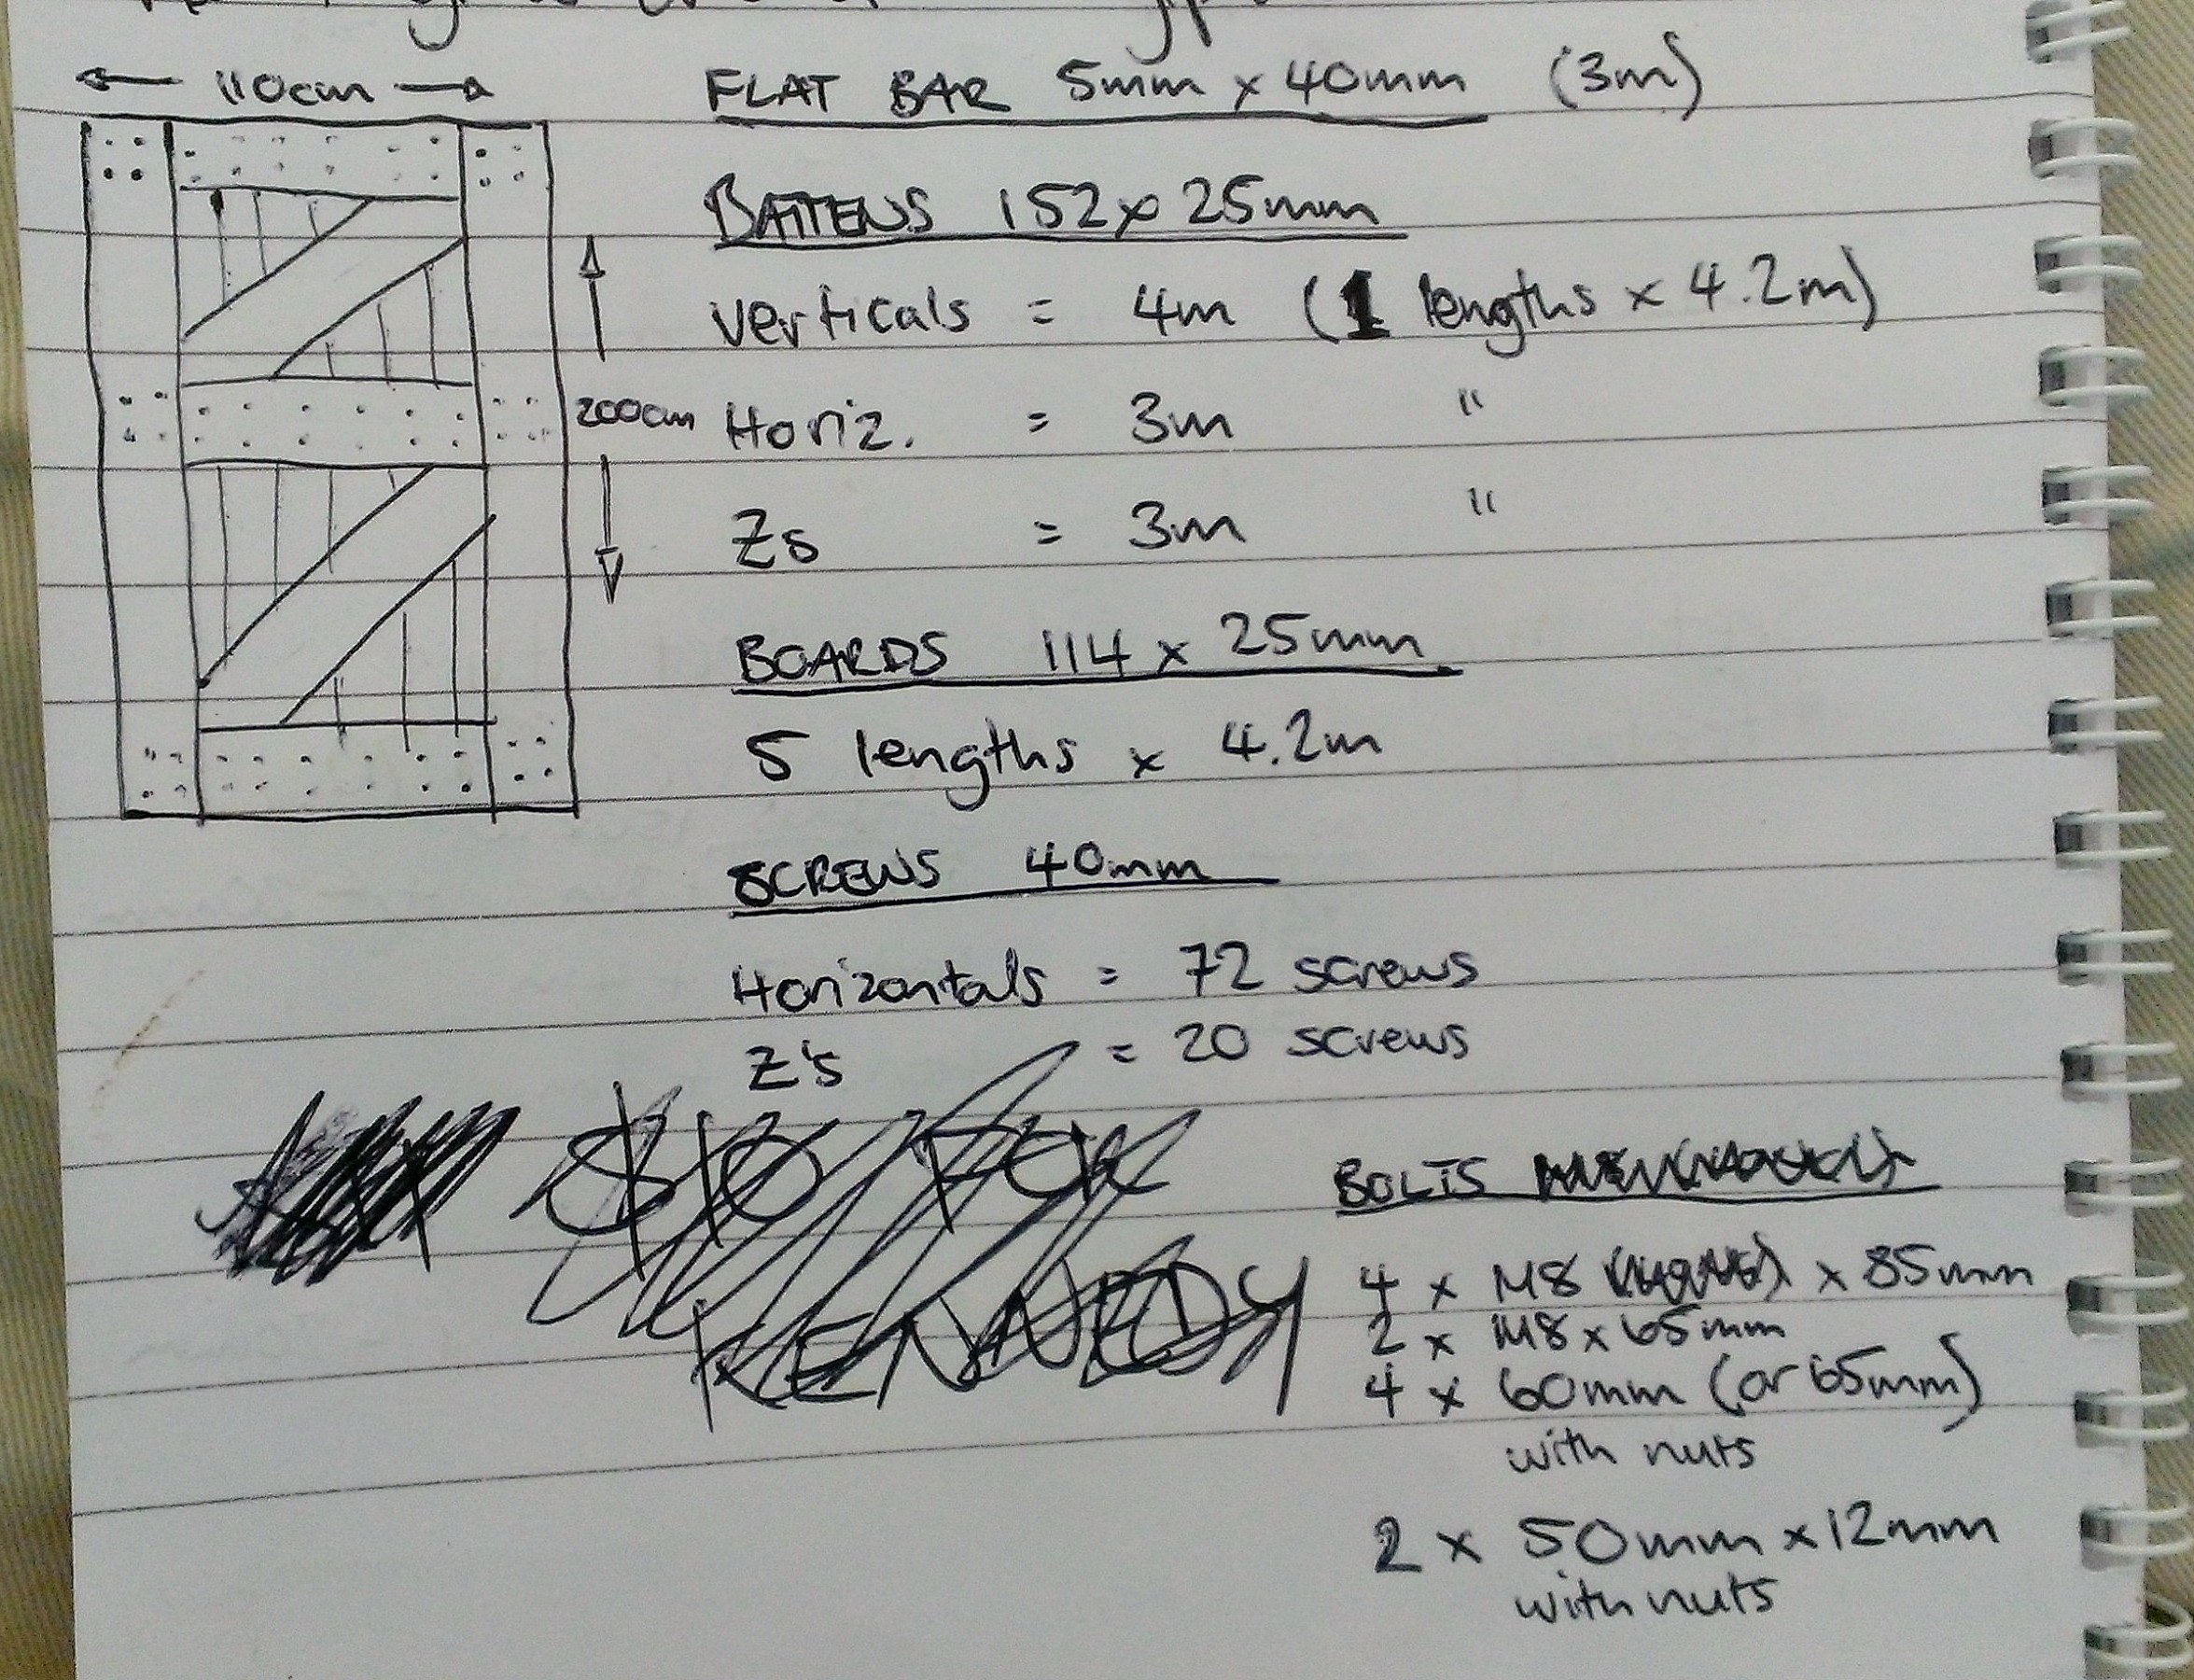 110cm
FLAT BAR 5mm x 40mm (3m)
BATTENS 152 x 25mm
verticals = 4m (1 lengths x 4.2m)
200cm
Horiz. = 3m "
Zs = 3m "
BOARDS 114 x 25mm
5 lengths x 4.2m
SCREWS 40mm
Horizontals = 72 screws
Z's = 20 screws
KENNEDY
BOLTS
4 x M8 x 85mm
2 x M8 x 65mm
4 x 60mm (or 65mm)
with nuts
2 x 50mm x 12mm
with nuts